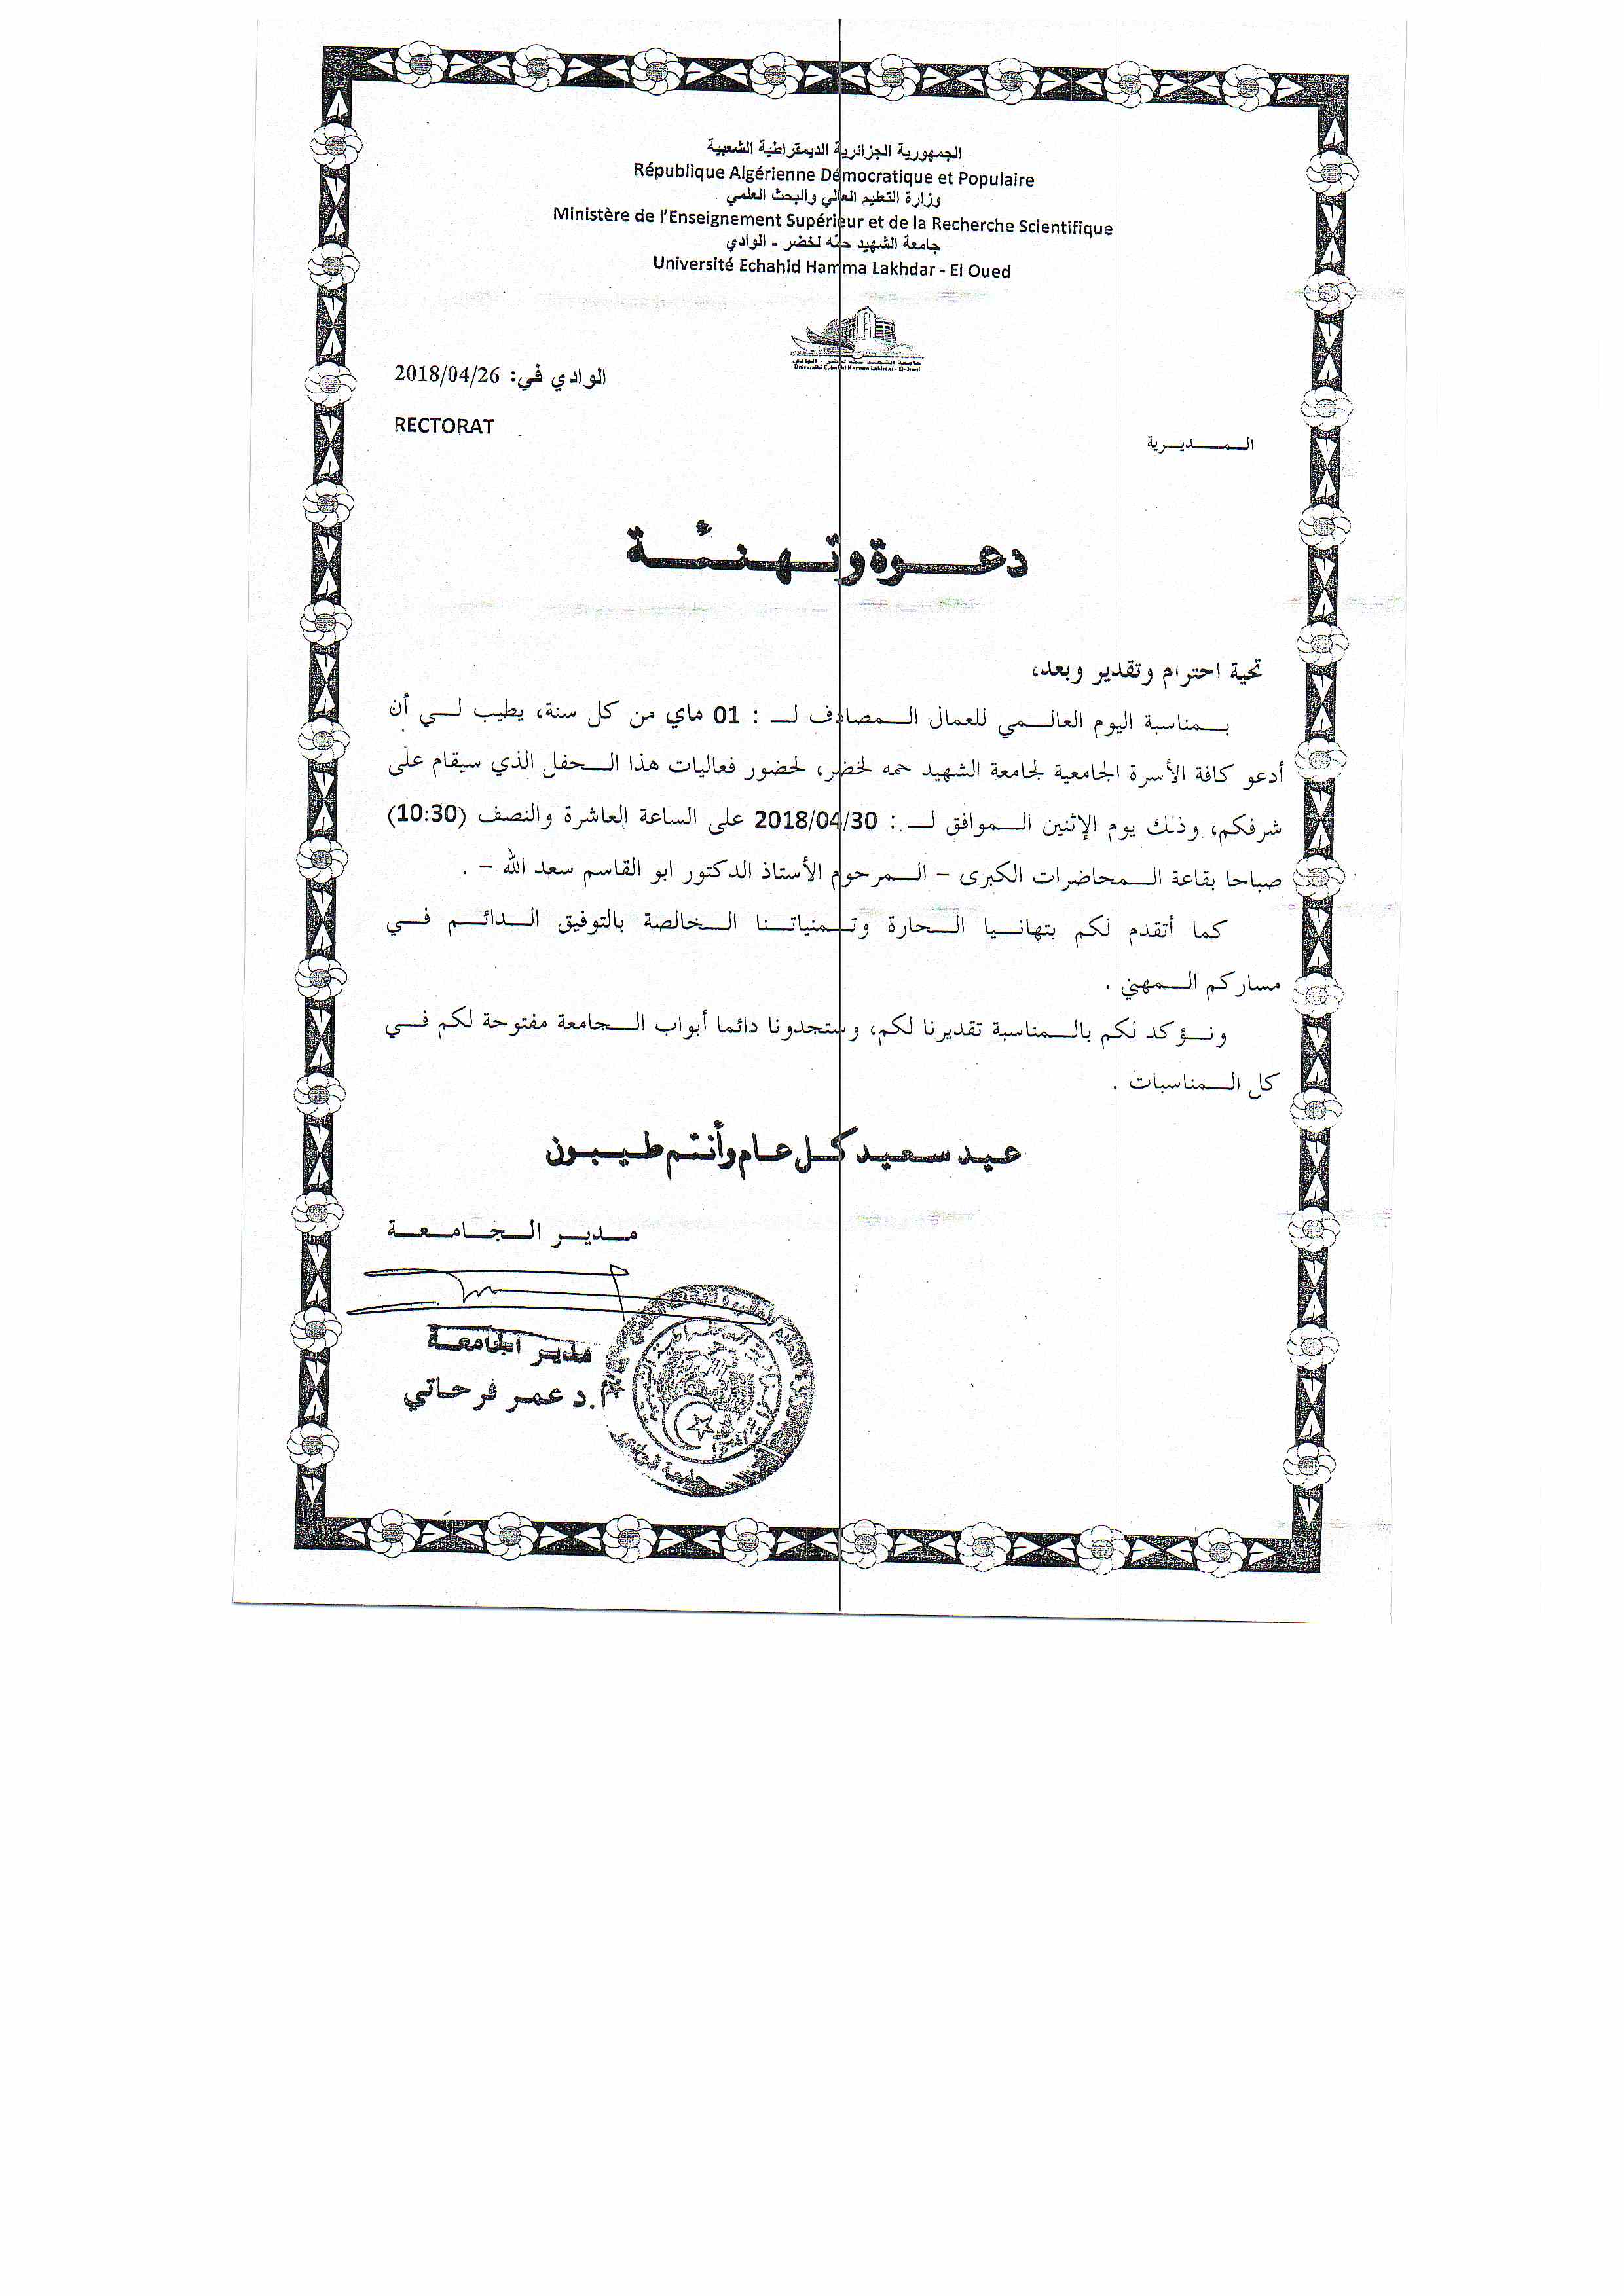 الجمهورية الجزائرية الديمقراطية الشعبية
République Algérienne Démocratique et Populaire
وزارة التعليم العالي والبحث العلمي
Ministère de l'Enseignement Supérieur et de la Recherche Scientifique
جامعة الشهيد حمّه لخضر - الوادي
Université Echahid Hamma Lakhdar - El Oued
جامعة الشهيد حمه لخضر - الوادي
Université Echahid Hamma Lakhdar - El-Oued
الوادي في: 2018/04/26
RECTORAT
الـمـــديـرية
دعــوة وتـهـنـئــة
تحية احترام وتقدير وبعد،
بـــمناسبة اليوم العالـــمي للعمال الـــمصادف لـــ : 01 ماي من كل سنة، يطيب لـــي أن
أدعو كافة الأسرة الجامعية لجامعة الشهيد حمه لخضر، لحضور فعاليات هذا الـــحفل الذي سيقام على
شرفكم، وذلك يوم الإثنين الـــموافق لـــ : 2018/04/30 على الساعة العاشرة والنصف (10:30)
صباحا بقاعة الـــمحاضرات الكبرى – الـــمرحوم الأستاذ الدكتور ابو القاسم سعد الله – .
كما أتقدم لكم بتهانـــيا الـــحارة وتـــمنياتـــنا الـــخالصة بالتوفيق الـــدائـــم فـــي
مساركم الـــمهني .
ونـــؤكد لكم بالـــمناسبة تقديرنا لكم، وستجدونا دائما أبواب الـــجامعة مفتوحة لكم فـــي
كل الـــمناسبات .
عيد سعيد كل عام وأنتم طيبون
مـديـر الـجـامـعـة
مدير الجامعة
أ.د عمر فرحاتي
جامعة الوادي